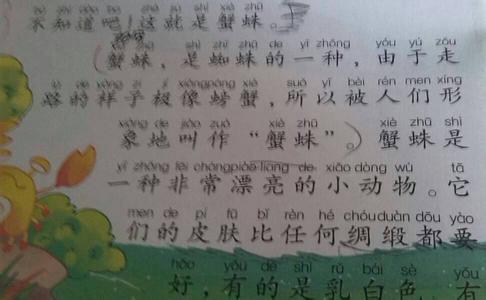 bù zhī dào ba zhè jiù shì xiè zhū
不知道吧！这就是蟹蛛。
zhū shì zhī zhū de yī zhǒng yóu yú zǒu
蟹蛛，是蜘蛛的一种，由于走
lù de yàng zi jí xiàng páng xiè suǒ yǐ bèi rén men xíng
路的样子极像螃蟹，所以被人们形
xiàng de jiào zuò xiè zhū xiè zhū shì
象地叫作“蟹蛛”。蟹蛛是
yī zhǒng fēi cháng piào liang de xiǎo dòng wù tā
一种非常漂亮的小动物。它
men de pí fū bǐ rèn hé chóu duàn dōu yào
们的皮肤比任何绸缎都要
hǎo yǒu de shì rǔ bái sè yǒu
好，有的是乳白色，有